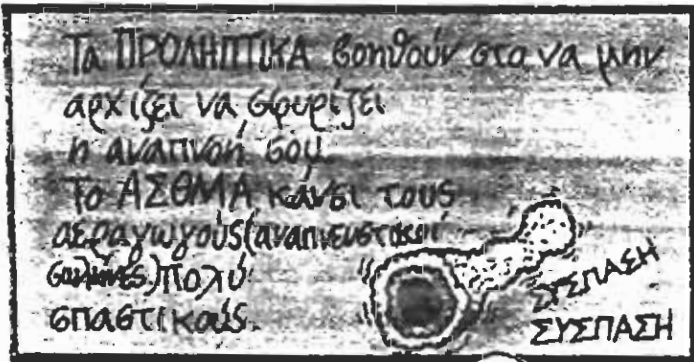 Τα ΠΡΟΛΗΠΤΙΚΑ βοηθούν στο να μην
αρχίζει να σφυρίζει
η αναπνοή σου
Το ΑΣΘΜΑ κάνει τους
αεραγωγούς (αναπνευστικοί
σωλήνες) πολύ
σπαστικούς
ΣΥΣΠΑΣΗ
ΣΥΣΠΑΣΗ